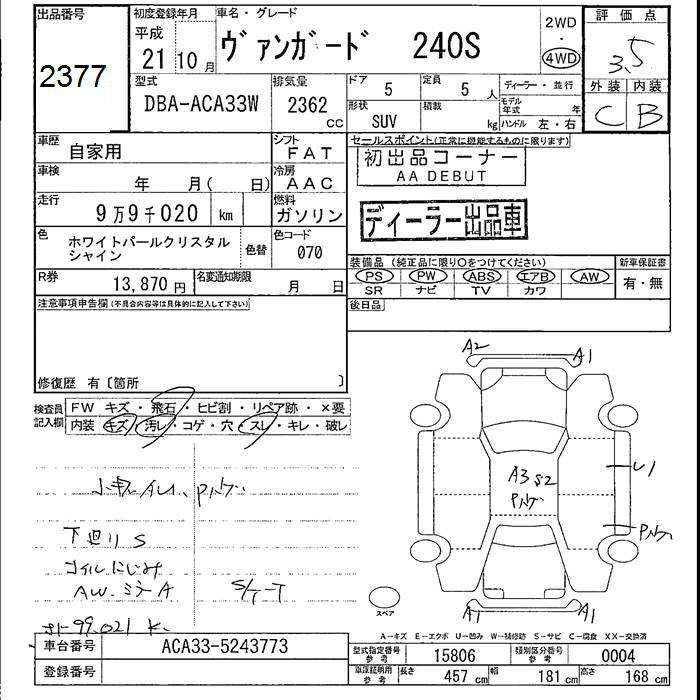 出品番号
2377
初度登録年月
平成
21 10月
車名・グレード
ヴァンガード 240S
2WD
・
4WD
評価点
3.5
外装 内装
C B
型式
DBA-ACA33W
排気量
2362
CC
ドア
5
定員
5 人
ディーラー・並行
形状
SUV
積載
kg
モデル年式 年
ハンドル 左・右
車歴
自家用
シフト
FAT
セールスポイント(正常に機能するものに限ります)
初出品コーナー
AA DEBUT
車検
年 月( 日)
冷房
AAC
走行
9万9千020 km
燃料
ガソリン
ディーラー出品車
色
ホワイトパールクリスタル
シャイン
色替
色コード
070
装備品 (純正品に限り○をつけてください)
新車保証書
PS PW ABS エアB AW
SR ナビ TV カワ
有・無
R券
13,870 円
名変通知期限
月 日
後日品
注意事項申告欄(不具合内容等は具体的に記入して下さい)
修復歴 有〔箇所 〕
検査員
記入欄
FW キズ・飛石・ヒビ割・リペア跡・×要
内装 キズ・汚レ・コゲ・穴・スレ・キレ・破レ
A2 A1
A3 S2
U1
小キズAU、
下廻りS
オイルにじみ
AW.ミラーA
S/T-T
99.021 K
A1 A1
スペア
A-キズ E-エクボ U-凹み W-補修跡 S-サビ C-腐食 XX-交換済
車台番号
ACA33-5243773
登録番号
型式指定番号
参考
15806
類別区分番号
参考
0004
車庫証明用
参考
長さ
457 cm
幅
181 cm
高さ
168 cm